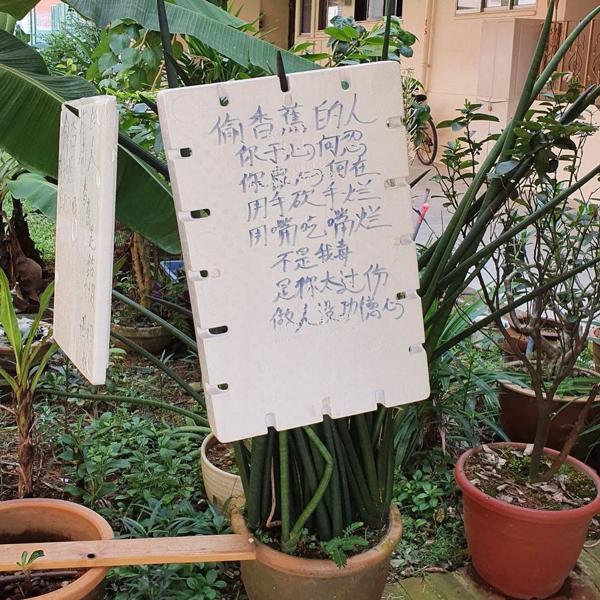 偷香蕉的人
你于心何忍
你心何在
用手砍手烂
用嘴吃嘴烂
不是我毒
是你太过份
做人没功德心